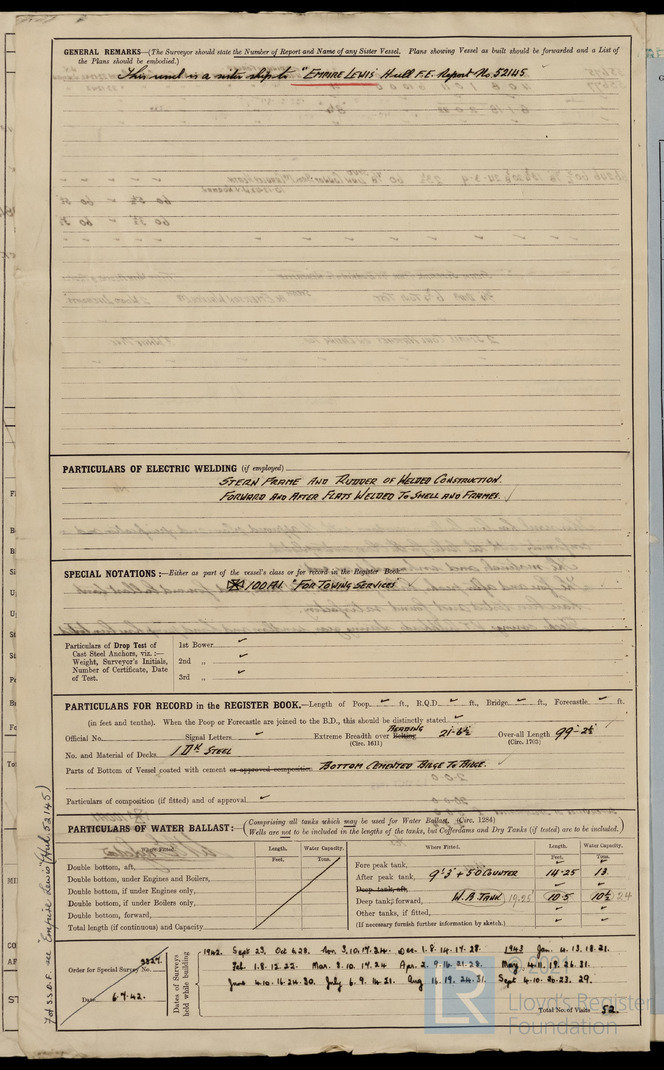 GENERAL REMARKS—(The Surveyor should state the Number of Report and Name of any Sister Vessel. Plans showing Vessel as built should be forwarded and a List of
the Plans should be embodied.)
This vessel is a sister ship to "EMPIRE LEWIS" Hull F.E. Report No. 52145.
PARTICULARS OF ELECTRIC WELDING (if employed)
STERN FRAME AND RUDDER OF WELDED CONSTRUCTION.
FORWARD AND AFTER FLATS WELDED TO SHELL AND FRAMES.
SPECIAL NOTATIONS:—Either as part of the vessel's class or for record in the Register Book
100A1. "FOR TOWING SERVICES"
Particulars of Drop Test of
Cast Steel Anchors, viz.:—
Weight, Surveyor's Initials,
Number of Certificate, Date
of Test.
1st Bower
2nd „
3rd „
PARTICULARS FOR RECORD in the REGISTER BOOK.—Length of Poop ft., R.Q.D. ft., Bridge ft., Forecastle ft.
(in feet and tenths). When the Poop or Forecastle are joined to the B.D., this should be distinctly stated
Official No. Signal Letters Extreme Breadth over Belting 21'-6½ Over-all Length 99'-2½
(Circ. 1611) (Circ. 1703)
No. and Material of Decks 1 DK STEEL
Parts of Bottom of Vessel coated with cement or approved composition BOTTOM CEMENTED BILGE TO BILGE.
Particulars of composition (if fitted) and of approval
PARTICULARS OF WATER BALLAST:—(Comprising all tanks which may be used for Water Ballast. (Circ. 1284)
Wells are not to be included in the lengths of the tanks, but Cofferdams and Dry Tanks (if tested) are to be included.)
Where Fitted. Length. Water Capacity.
Feet. Tons.
Double bottom, aft,
Double bottom, under Engines and Boilers,
Double bottom, if under Engines only,
Double bottom, if under Boilers only,
Double bottom, forward,
Total length (if continuous) and Capacity
Where Fitted. Length. Water Capacity.
Feet. Tons.
Fore peak tank,
After peak tank, 9'·3" + 5'0 COUNTER 14·25 13
Deep tank, aft,
Deep tank, forward, W.B TANK 19.25' 10·5 10½ 24
Other tanks, if fitted,
(If necessary furnish further information by sketch.)
For S.S.D.F. see "Empire Lewis" (Hul. 52145)
Order for Special Survey No. 3327.
Date 6·7·42.
Dates of Surveys
held while building
1942. Sept 23. Oct 6.28. Nov. 3.10.17.24. Dec. 1.8.14.17.28. 1943 Jan. 4.13.18.21.
Feb. 1.8.12.22. Mar. 3.10.17.24 Apr. 2.9.16.21.28. May 4.11.18.26.31.
June 4.10.16.24.30. July 6.9.14.21. Aug 16.19.24.31. Sept 4.10.20.23.29.
Total No. of Visits 52.
© 2021
LR
Lloyd's Register
Foundation